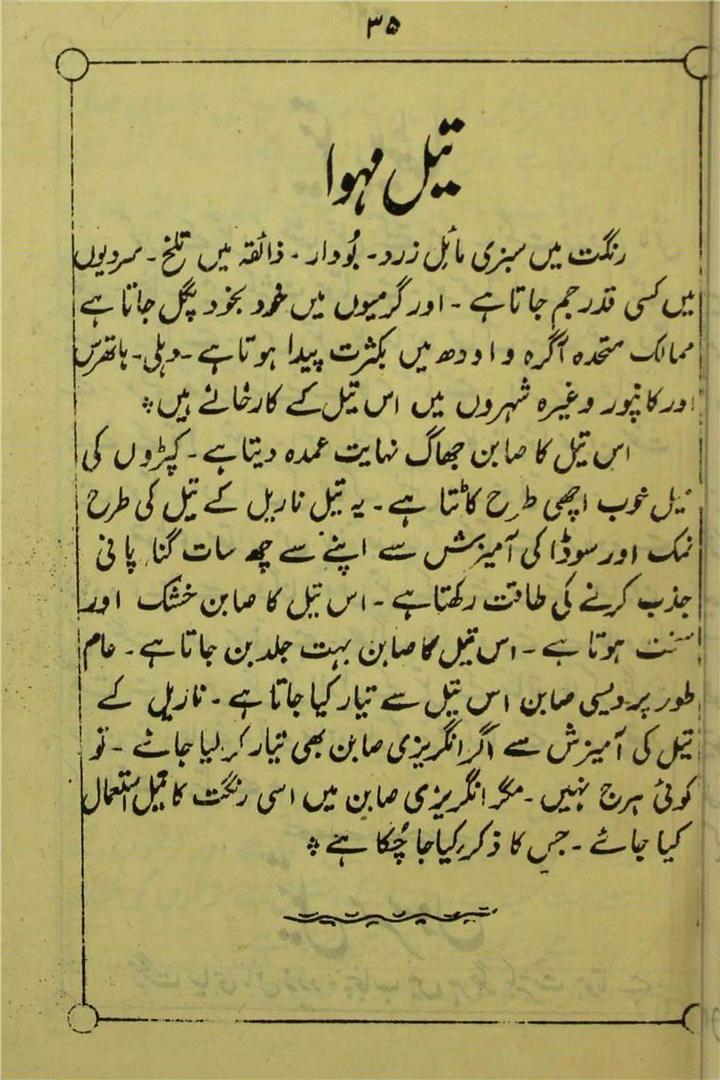 ۳۵
تیل مہوا
رنگت میں سبزی مائل زرد۔ بُودار۔ ذائقہ میں تلخ۔ سردیوں
میں کسی قدر جم جاتا ہے۔ اور گرمیوں میں خود بخود پگل جاتا ہے
ممالک متحدہ آگرہ و اودھ میں بکثرت پیدا ہوتا ہے۔ دہلی۔ ہاتھرس
اور کانپور وغیرہ شہروں میں اس تیل کے کارخانے ہیں ؞
اس تیل کا صابن جھاگ نہایت عمدہ دیتا ہے۔ کپڑوں کی
میل خوب اچھی طرح کاٹتا ہے۔ یہ تیل ناریل کے تیل کی طرح
نمک اور سوڈا کی آمیزش سے اپنے سے چھ سات گنا پانی
جذب کرنے کی طاقت رکھتا ہے۔ اس تیل کا صابن خشک اور
سخت ہوتا ہے۔ اس تیل کا صابن بہت جلد بن جاتا ہے۔ عام
طور پر دیسی صابن اس تیل سے تیار کیا جاتا ہے۔ ناریل کے
تیل کی آمیزش سے اگر انگریزی صابن بھی تیار کر لیا جائے۔ تو
کوئی ہرج نہیں۔ مگر انگریزی صابن میں اسی رنگت کا تیل استعمال
کیا جائے۔ جس کا ذکر کیا جا چُکا ہے ؞